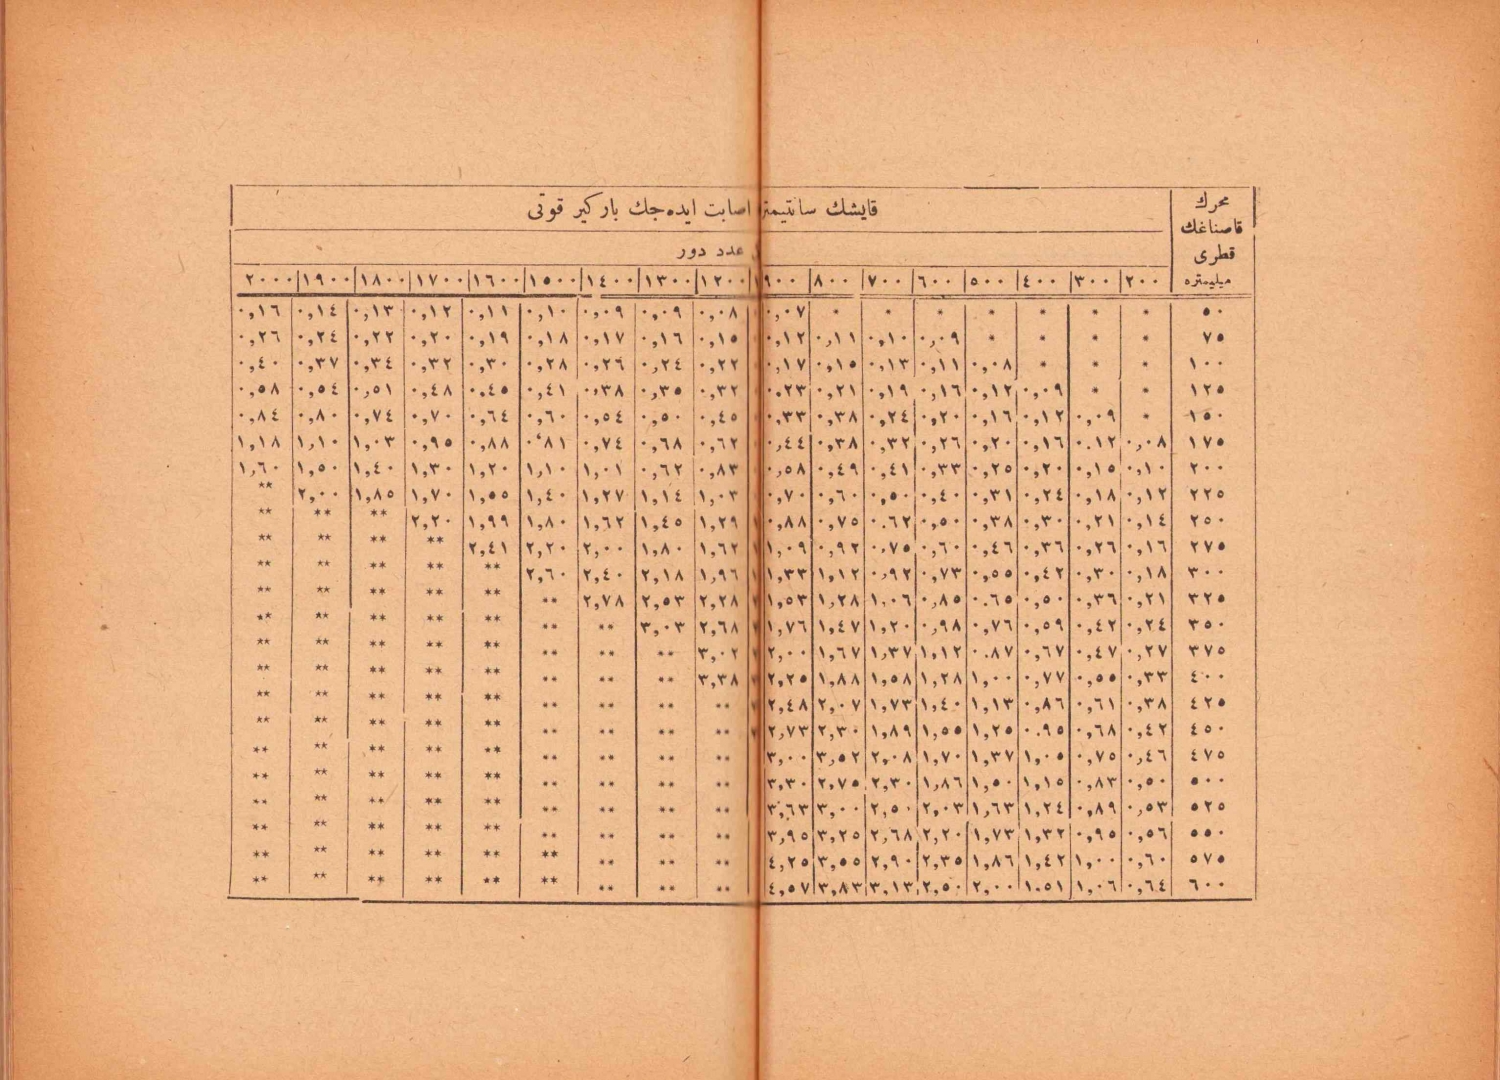 محرك
قاصناغك
قطرى
ميليمتره
قايشك سانتيمتر اصابت ايده‌جك باركير قوتى
عدد دور
٢٠٠ ٣٠٠ ٤٠٠ ٥٠٠ ٦٠٠ ٧٠٠ ٨٠٠ ٩٠٠ ١٢٠٠ ١٣٠٠ ١٤٠٠ ١٥٠٠ ١٦٠٠ ١٧٠٠ ١٨٠٠ ١٩٠٠ ٢٠٠٠
٥٠ * * * * * * * ٠,٠٧ ٠,٠٨ ٠,٠٩ ٠,٠٩ ٠,١٠ ٠,١١ ٠,١٢ ٠,١٣ ٠,١٤ ٠,١٦
٧٥ * * * * ٠,٠٩ ٠,١٠ ٠,١١ ٠,١٢ ٠,١٥ ٠,١٦ ٠,١٧ ٠,١٨ ٠,١٩ ٠,٢٠ ٠,٢٢ ٠,٢٤ ٠,٢٦
١٠٠ * * * ٠,٠٨ ٠,١١ ٠,١٣ ٠,١٥ ٠,١٧ ٠,٢٢ ٠,٢٤ ٠,٢٦ ٠,٢٨ ٠,٣٠ ٠,٣٢ ٠,٣٤ ٠,٣٧ ٠,٤٠
١٢٥ * * ٠,٠٩ ٠,١٢ ٠,١٦ ٠,١٩ ٠,٢١ ٠,٢٣ ٠,٣٢ ٠,٣٥ ٠,٣٨ ٠,٤١ ٠,٤٥ ٠,٤٨ ٠,٥١ ٠,٥٤ ٠,٥٨
١٥٠ * ٠,٠٩ ٠,١٢ ٠,١٦ ٠,٢٠ ٠,٢٤ ٠,٣٨ ٠,٣٣ ٠,٤٥ ٠,٥٠ ٠,٥٤ ٠,٦٠ ٠,٦٤ ٠,٧٠ ٠,٧٤ ٠,٨٠ ٠,٨٤
١٧٥ ٠,٠٨ ٠.١٢ ٠,١٦ ٠,٢٠ ٠,٢٦ ٠,٣٢ ٠,٣٨ ٠,٤٤ ٠,٦٢ ٠,٦٨ ٠,٧٤ ٠,٨١ ٠,٨٨ ٠,٩٥ ١,٠٣ ١,١٠ ١,١٨
٢٠٠ ٠,١٠ ٠,١٥ ٠,٢٠ ٠,٢٥ ٠,٣٣ ٠,٤١ ٠,٤٩ ٠,٥٨ ٠,٨٣ ٠,٦٢ ١,٠١ ١,١٠ ١,٢٠ ١,٣٠ ١,٤٠ ١,٥٠ ١,٦٠
٢٢٥ ٠,١٢ ٠,١٨ ٠,٢٤ ٠,٣١ ٠,٤٠ ٠,٥٠ ٠,٦٠ ٠,٧٠ ١,٠٣ ١,١٤ ١,٢٧ ١,٤٠ ١,٥٥ ١,٧٠ ١,٨٥ ٢,٠٠ **
٢٥٠ ٠,١٤ ٠,٢١ ٠,٣٠ ٠,٣٨ ٠,٥٠ ٠.٦٢ ٠,٧٥ ٠,٨٨ ١,٢٩ ١,٤٥ ١,٦٢ ١,٨٠ ١,٩٩ ٢,٢٠ ** ** **
٢٧٥ ٠,١٦ ٠,٢٦ ٠,٣٦ ٠,٤٦ ٠,٦٠ ٠,٧٥ ٠,٩٢ ١,٠٩ ١,٦٢ ١,٨٠ ٢,٠٠ ٢,٢٠ ٢,٤١ ** ** ** **
٣٠٠ ٠,١٨ ٠,٣٠ ٠,٤٢ ٠,٥٥ ٠,٧٣ ٠,٩٢ ١,١٢ ١,٣٣ ١,٩٦ ٢,١٨ ٢,٤٠ ٢,٦٠ ** ** ** ** **
٣٢٥ ٠,٢١ ٠,٣٦ ٠,٥٠ ٠.٦٥ ٠,٨٥ ١,٠٦ ١,٢٨ ١,٥٣ ٢,٢٨ ٢,٥٣ ٢,٧٨ ** ** ** ** ** **
٣٥٠ ٠,٢٤ ٠,٤٢ ٠,٥٩ ٠,٧٦ ٠,٩٨ ١,٢٠ ١,٤٧ ١,٧٦ ٢,٦٨ ٣,٠٣ ** ** ** ** ** ** **
٣٧٥ ٠,٢٧ ٠,٤٧ ٠,٦٧ ٠.٨٧ ١,١٢ ١,٣٧ ١,٦٧ ٢,٠٠ ٣,٠٢ ** ** ** ** ** ** ** **
٤٠٠ ٠,٣٣ ٠,٥٥ ٠,٧٧ ١,٠٠ ١,٢٨ ١,٥٨ ١,٨٨ ٢,٢٥ ٣,٣٨ ** ** ** ** ** ** ** **
٤٢٥ ٠,٣٨ ٠,٦١ ٠,٨٦ ١,١٣ ١,٤٠ ١,٧٣ ٢,٠٧ ٢,٤٨ ** ** ** ** ** ** ** ** **
٤٥٠ ٠,٤٢ ٠,٦٨ ٠.٩٥ ١,٢٥ ١,٥٥ ١,٨٩ ٢,٣٠ ٢,٧٣ ** ** ** ** ** ** ** ** **
٤٧٥ ٠,٤٦ ٠,٧٥ ١,٠٥ ١,٣٧ ١,٧٠ ٢,٠٨ ٣,٥٢ ٣,٠٠ ** ** ** ** ** ** ** ** **
٥٠٠ ٠,٥٠ ٠,٨٣ ١,١٥ ١,٥٠ ١,٨٦ ٢,٣٠ ٢,٧٥ ٣,٣٠ ** ** ** ** ** ** ** ** **
٥٢٥ ٠,٥٣ ٠,٨٩ ١,٢٤ ١,٦٣ ٢,٠٣ ٢,٥٠ ٣,٠٠ ٣,٦٣ ** ** ** ** ** ** ** ** **
٥٥٠ ٠,٥٦ ٠,٩٥ ١,٣٢ ١,٧٣ ٢,٢٠ ٢,٦٨ ٣,٢٥ ٣,٩٥ ** ** ** ** ** ** ** ** **
٥٧٥ ٠,٦٠ ١,٠٠ ١,٤٢ ١,٨٦ ٢,٣٥ ٢,٩٠ ٣,٥٥ ٤,٢٥ ** ** ** ** ** ** ** ** **
٦٠٠ ٠,٦٤ ١,٠٦ ١.٥١ ٢,٠٠ ٢,٥٠ ٣,١٣ ٣,٨٣ ٤,٥٧ ** ** ** ** ** ** ** ** **